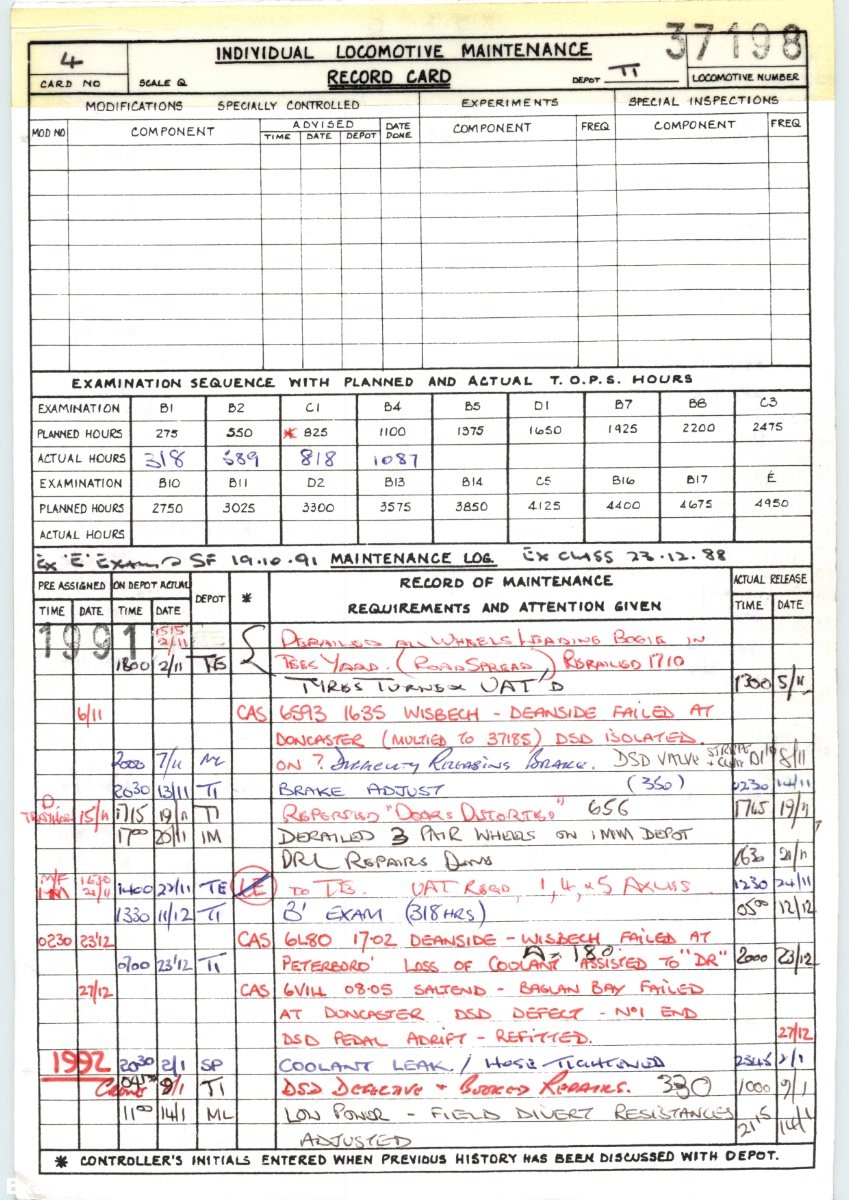 4 INDIVIDUAL LOCOMOTIVE MAINTENANCE 37198
CARD NO SCALE Q RECORD CARD DEPOT TI LOCOMOTIVE NUMBER
MODIFICATIONS SPECIALLY CONTROLLED EXPERIMENTS SPECIAL INSPECTIONS
MOD NO COMPONENT ADVISED DATE DONE COMPONENT FREQ COMPONENT FREQ
TIME DATE DEPOT
EXAMINATION SEQUENCE WITH PLANNED AND ACTUAL T.O.P.S. HOURS
EXAMINATION B1 B2 C1 B4 B5 D1 B7 B8 C3
PLANNED HOURS 275 550 * 825 1100 1375 1650 1925 2200 2475
ACTUAL HOURS 318 589 818 1087
EXAMINATION B10 B11 D2 B13 B14 C5 B16 B17 E
PLANNED HOURS 2750 3025 3300 3575 3850 4125 4400 4675 4950
ACTUAL HOURS
EX 'E' EXAM SF 19.10.91 MAINTENANCE LOG. EX CLASS 23.12.88
PRE ASSIGNED ON DEPOT ACTUAL DEPOT * RECORD OF MAINTENANCE ACTUAL RELEASE
TIME DATE TIME DATE REQUIREMENTS AND ATTENTION GIVEN TIME DATE
1991 1515 2/11 DERAILED ALL WHEELS LEADING BOGIE IN
1800 2/11 TE TEES YARD. (ROAD SPREAD) RERAILED 1710
TYRES TURNED UAT'D 1300 5/11
6/11 CAS 6S93 1635 WISBECH - DEANSIDE FAILED AT
DONCASTER (MULTIED TO 37185) DSD ISOLATED.
2000 7/11 ML ON ? DIFFICULTY RELEASING BRAKE. DSD VALVE STRIPPED 8/11
2030 13/11 TI BRAKE ADJUST (350) 0230 14/11
15/11 1715 19/11 TI REPORTED "DOORS DISTORTED" 656 1745 19/11
1700 20/11 IM DERAILED 3 PAIR WHEELS ON IMM DEPOT
DRL REPAIRS DONE 0630 21/11
M/F IM 1630 21/11 1400 22/11 TE LE TO TE. UAT REQD, 1, 4, & 5 AXLES 1230 24/11
1330 11/12 TI B' EXAM (318 HRS) 0500 12/12
0230 23'12 CAS 6L80 17·02 DEANSIDE - WISBECH FAILED AT
0700 23'12 TI PETERBORO' LOSS OF COOLANT A-180 ASSISTED TO "DR" 2000 23/12
27/12 CAS 6V14 08·05 SALTEND - BAGLAN BAY FAILED
AT DONCASTER DSD DEFECT - Nº1 END
DSD PEDAL ADRIFT - REFITTED. 27/12
1992 2030 2/1 SP COOLANT LEAK / HOSE TIGHTENED 2345 2/1
0415 9/1 TI DSD DEFECTIVE + BOOKED REPAIRS. 330 1000 9/1
1100 14/1 ML LOW POWER - FIELD DIVERT RESISTANCES
ADJUSTED 2115 14/1
* CONTROLLER'S INITIALS ENTERED WHEN PREVIOUS HISTORY HAS BEEN DISCUSSED WITH DEPOT.